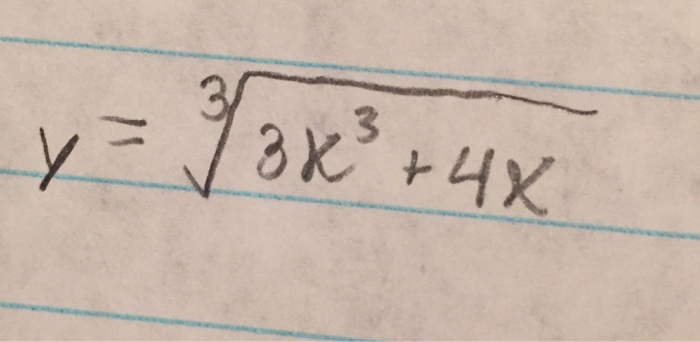 y = ∛(3x³ + 4x)